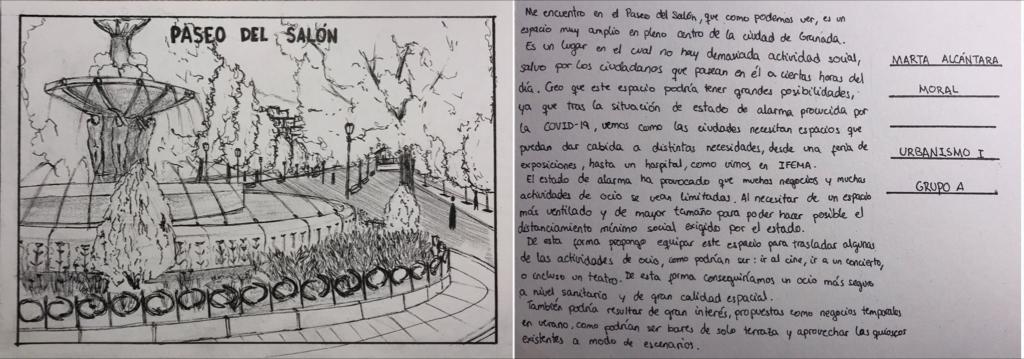 PASEO DEL SALÓN
Me encuentro en el Paseo del Salón, que como podemos ver, es un
espacio muy amplio en pleno centro de la ciudad de Granada.
Es un lugar en el cual no hay demasiada actividad social,
salvo por los ciudadanos que pasean en él a ciertas horas del
día. Creo que este espacio podría tener grandes posibilidades,
ya que tras la situación de estado de alarma provocida por
la COVID-19, vemos como las ciudades necesitan espacios que
puedan dar cabida a distintas necesidades, desde una feria de
exposiciones, hasta un hospital, como vimos en IFEMA.
El estado de alarma ha provocado que muchos negocios y muchas
actividades de ocio se vean limitadas. Al necesitar de un espacio
más ventilado y de mayor tamaño para poder hacer posible el
distanciamiento mínimo social exigido por el estado.
De esta forma propongo equipar este espacio para trasladar algunas
de las actividades de ocio, como podrían ser: ir al cine, ir a un concierto,
o incluso un teatro. De esta forma conseguiríamos un ocio más seguro
a nivel sanitario y de gran calidad espacial.
También podría resultar de gran interés, propuestas como negocios temporales
en verano, como podrían ser bares de solo terraza y aprovechar los quioscos
existentes a modo de escenarios.
MARTA ALCÁNTARA
MORAL
URBANISMO I
GRUPO A